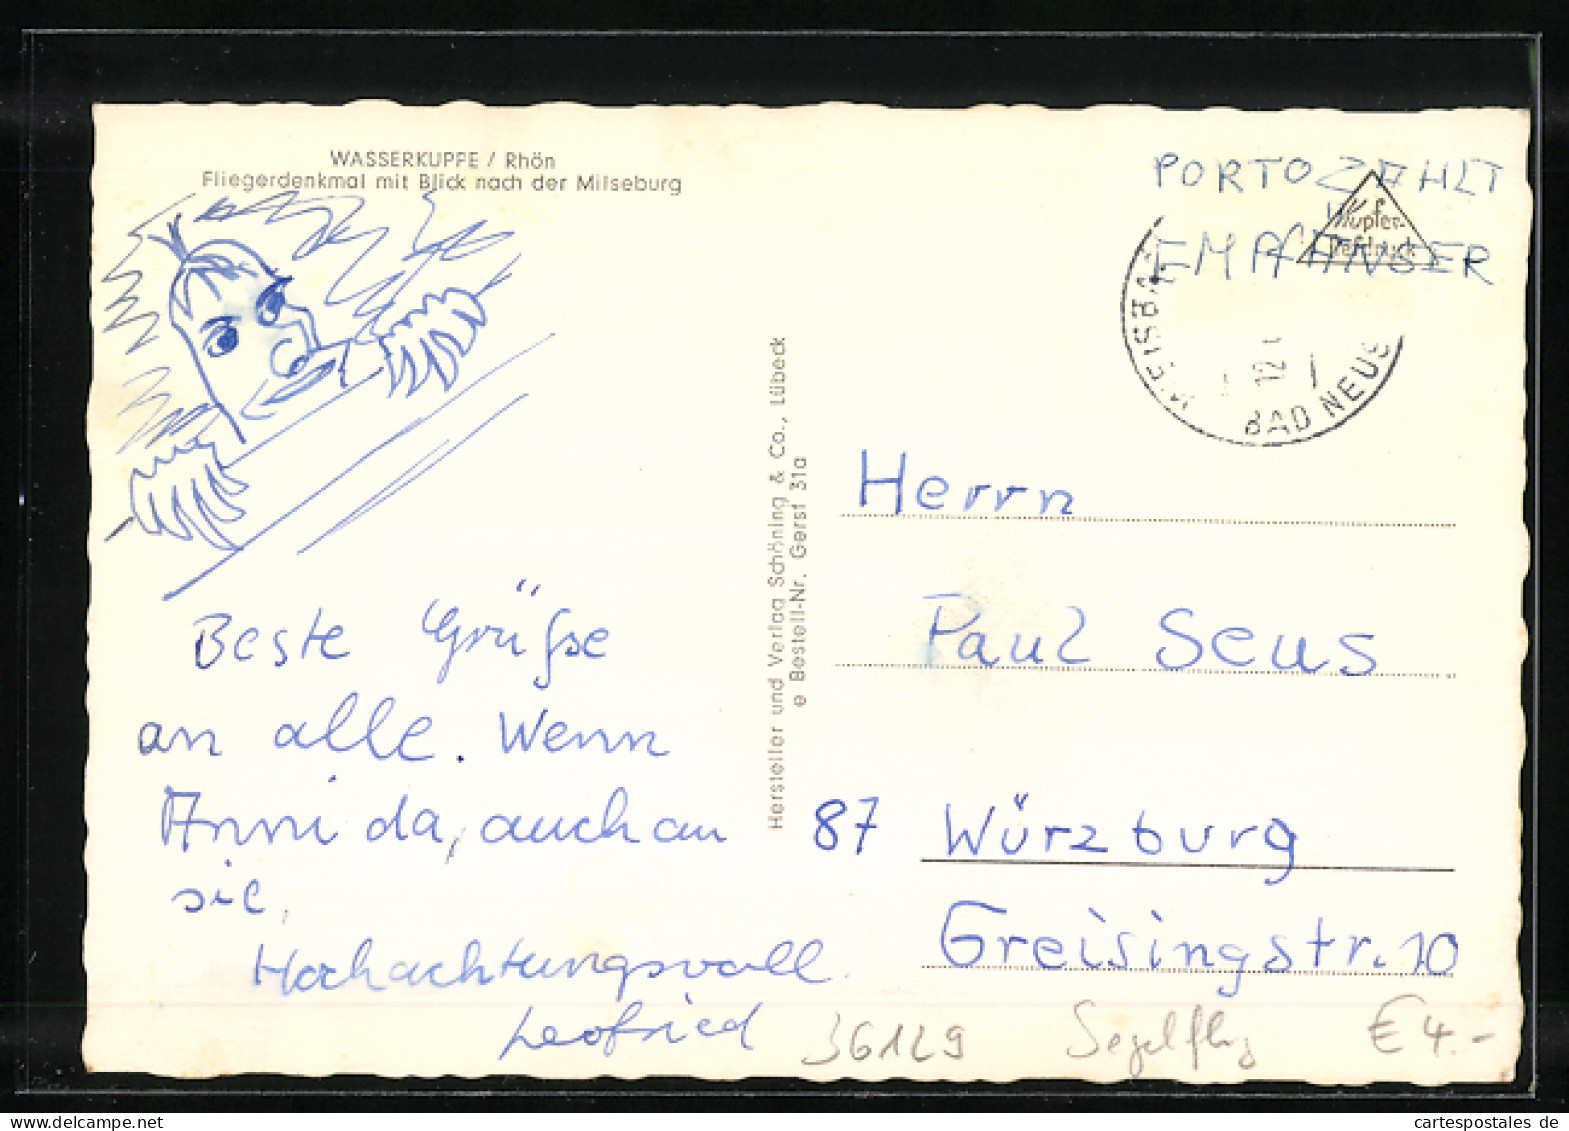 WASSERKUPPE / Rhön
Fliegerdenkmal mit Blick nach der Milseburg
Beste Grüße
an alle. Wenn
Anni da, auch an
sie.
Hochachtungsvoll
Leofried
Hersteller und Verlag Schöning & Co., Lübeck
Bestell-Nr. Gersf 31a
PORTO ZAHLT
EMPFÄNGER
Kupfer-
Tiefdruck
12
BAD NEUS
Herrn
Paul Seus
87 Würzburg
Greisingstr. 10
36129 Segelflug € 4.-
cartespostales.de